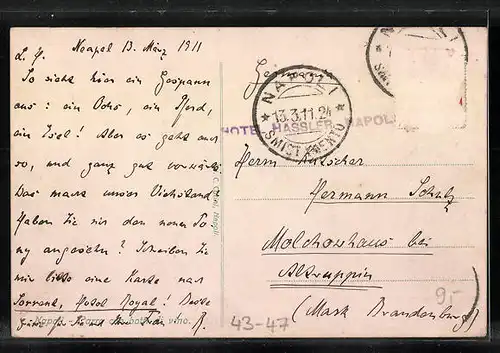 L. H. Neapel 13. März 1911
So sieht hier ein Gespann
aus: ein Ochs, ein Pferd,
ein Esel! Aber es geht auch
so, und ganz gut vorwärts
Das macht unser Viehstand?
Haben Sie nur den neuen Po-
ny angesehn? Schreiben Sie
mir bitte eine Karte nach
Sorrent, Hotel Royal! Beste
Grüße
Napoli - Carro con botti di vino.
Napoli
Germania
NAPOLI
13.3.11.24
SMISTAMENTO
HOTEL HASSLER NAPOLI
Herrn Kutscher
Hermann Schulz
Molchowhaus bei
Altruppin
(Mark Brandenburg)
9.-
43-47